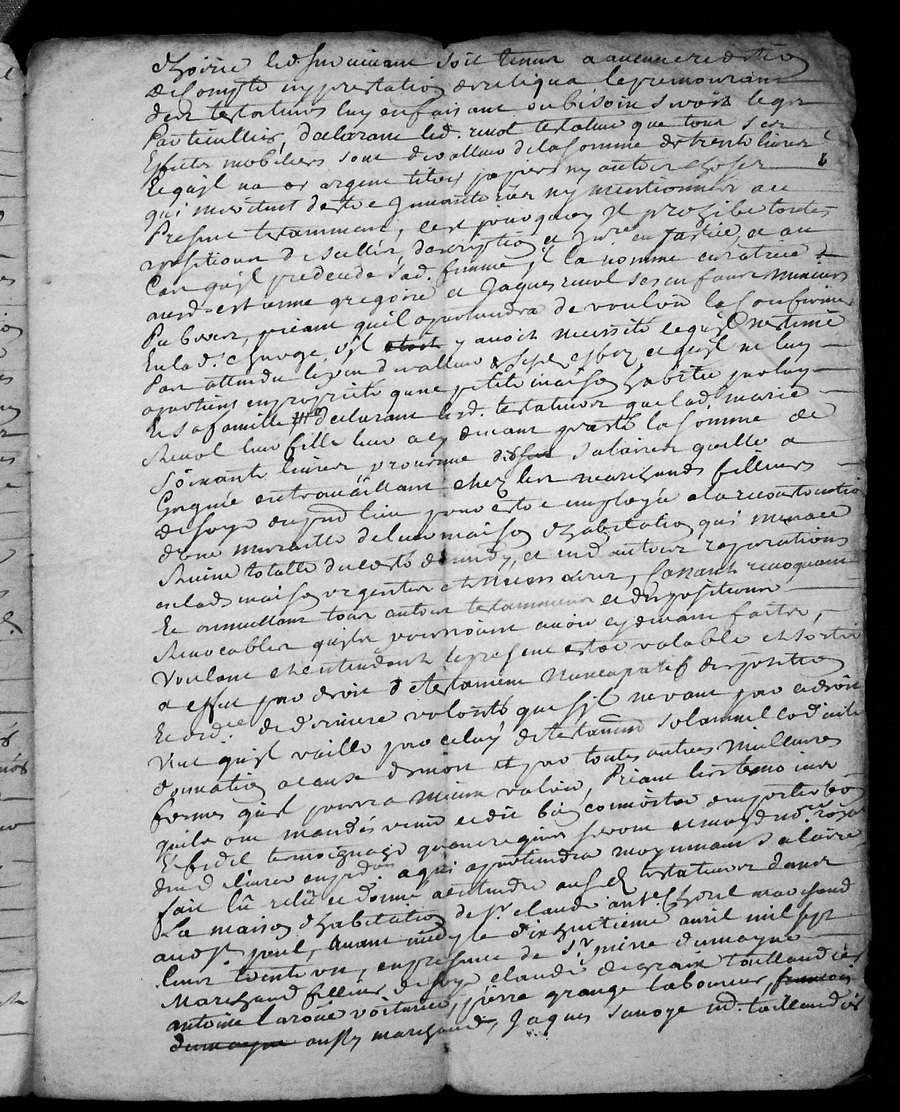 led. survivant soit tenu a aucune
de compte ny prestation de reliqua le premourant
des testateurs luy en faisant ou besoin seroit legat
Particullier, declarant led. revol testateur que tous ses
Effets mobiliers sont de valleur de la somme de trente livres
Et quil na or argent titres papiers ny autres choses
qui meritent destre ny mentionnés au
Present testament, cest pourquoy Il prohibe toutes
apositions de scellés, description et Inre. en Justice, et au
Cas quil predecede sad. femme, Il la nomme curatrice
aud. estienne gregoire et Jaques revol ses enfans mineurs
Pubères, priant quil apartiendra de vouloir la Confirmer
En lad. charge, s'il y avoit necessité ce quil nestime
Pas attendu le peu de valleur de sesd. effets et quil ne luy
apartient en proprieté quune petite maison habitée par luy
Et sa famille declarant lesd. testateurs que lad. marie
Revol leur fille leur a cy devant presté la somme de
Soixante livres provenue des salaires quelle a
Gagnée en travaillant chez les marchands filleurs
de soye aud. lieu pour estre employée a la reconstruction
d'une muraille de leur maison d'habitation qui menace
Ruine totalle du costé de midy, et aud. autres reparations
en lad. maison urgentes et necessaires, Cassant revoquant
Et annullant tous autres testaments et dispositions
Revocables quils pourroient avoir cy devant faites,
Voulant et entendant le present estre valable et sortir
a effet par droit de testament nuncupatif disposition
Et ordce. de derniere volonté que s'il ne vaut par ce droit
Veut quil vaille par celuy de testament solemnel codicille
donnation a cause de mort et par toutes autres meilleures
formes quil pourra mieux valoir, Priant les temoins
quils ont mandés venir et dit bien connoistre en porter bon
Et fidel temoignage quant requis seront et moyd. nore. royal
den delivrer expedon. a qui apartiendra moyennant salaire
fait lû relû et donné a entendre auxd. testateurs dans
La maison d'habitation de Sr. claude ante. chorel marchand
aud. st. paul, avant midy le dixhuitieme avril mil sept
Cent trente un, en presence de Sr. mine dumayne
Marchand filleur de soye, claude degraix taillandier
antoine laroüe voiturier, pierre grange laboureur, francois
dumayne aussy marchand, Jaques savoye md. taillandier